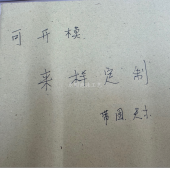 可开模
来样定制
带图